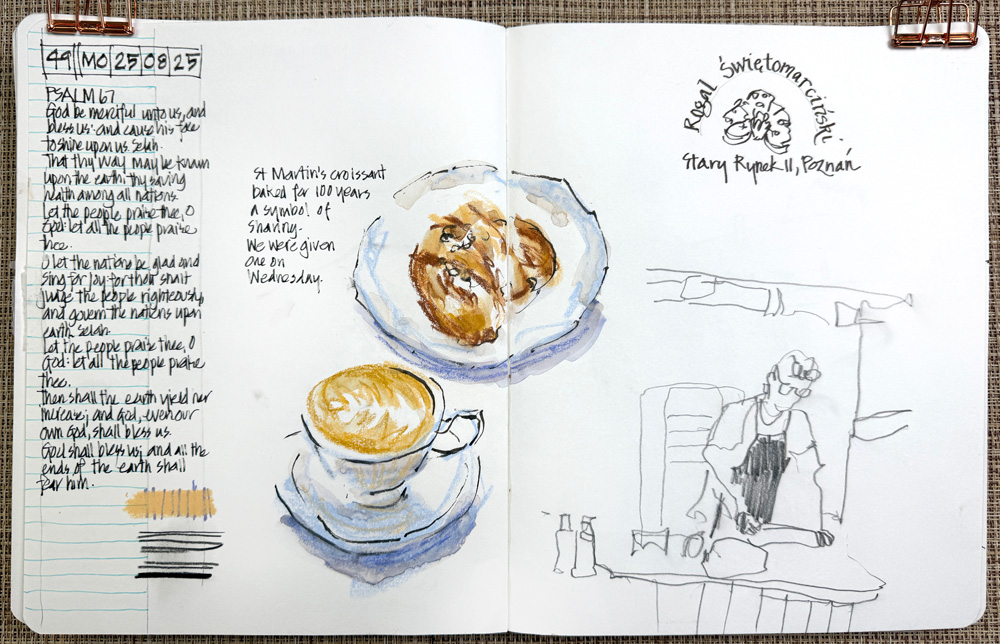 49 MO 25 08 25
PSALM 67
God be merciful unto us, and
bless us: and cause his face
to shine upon us. Selah.
That thy way may be known
upon the earth: thy saving
health among all nations.
Let the people praise thee, O
God: let all the people praise
thee.
O let the nations be glad and
sing for joy: for thou shalt
judge the people righteously,
and govern the nations upon
earth. Selah.
Let the people praise thee, O
God: let all the people praise
thee.
Then shall the earth yield her
increase; and God, even our
own God, shall bless us.
God shall bless us; and all the
ends of the earth shall
fear him.
St Martin's croissant
baked for 100 years
A symbol of
sharing.
We were given
one on
Wednesday.
Rogal Świętomarciński.
Stary Rynek 11, Poznań